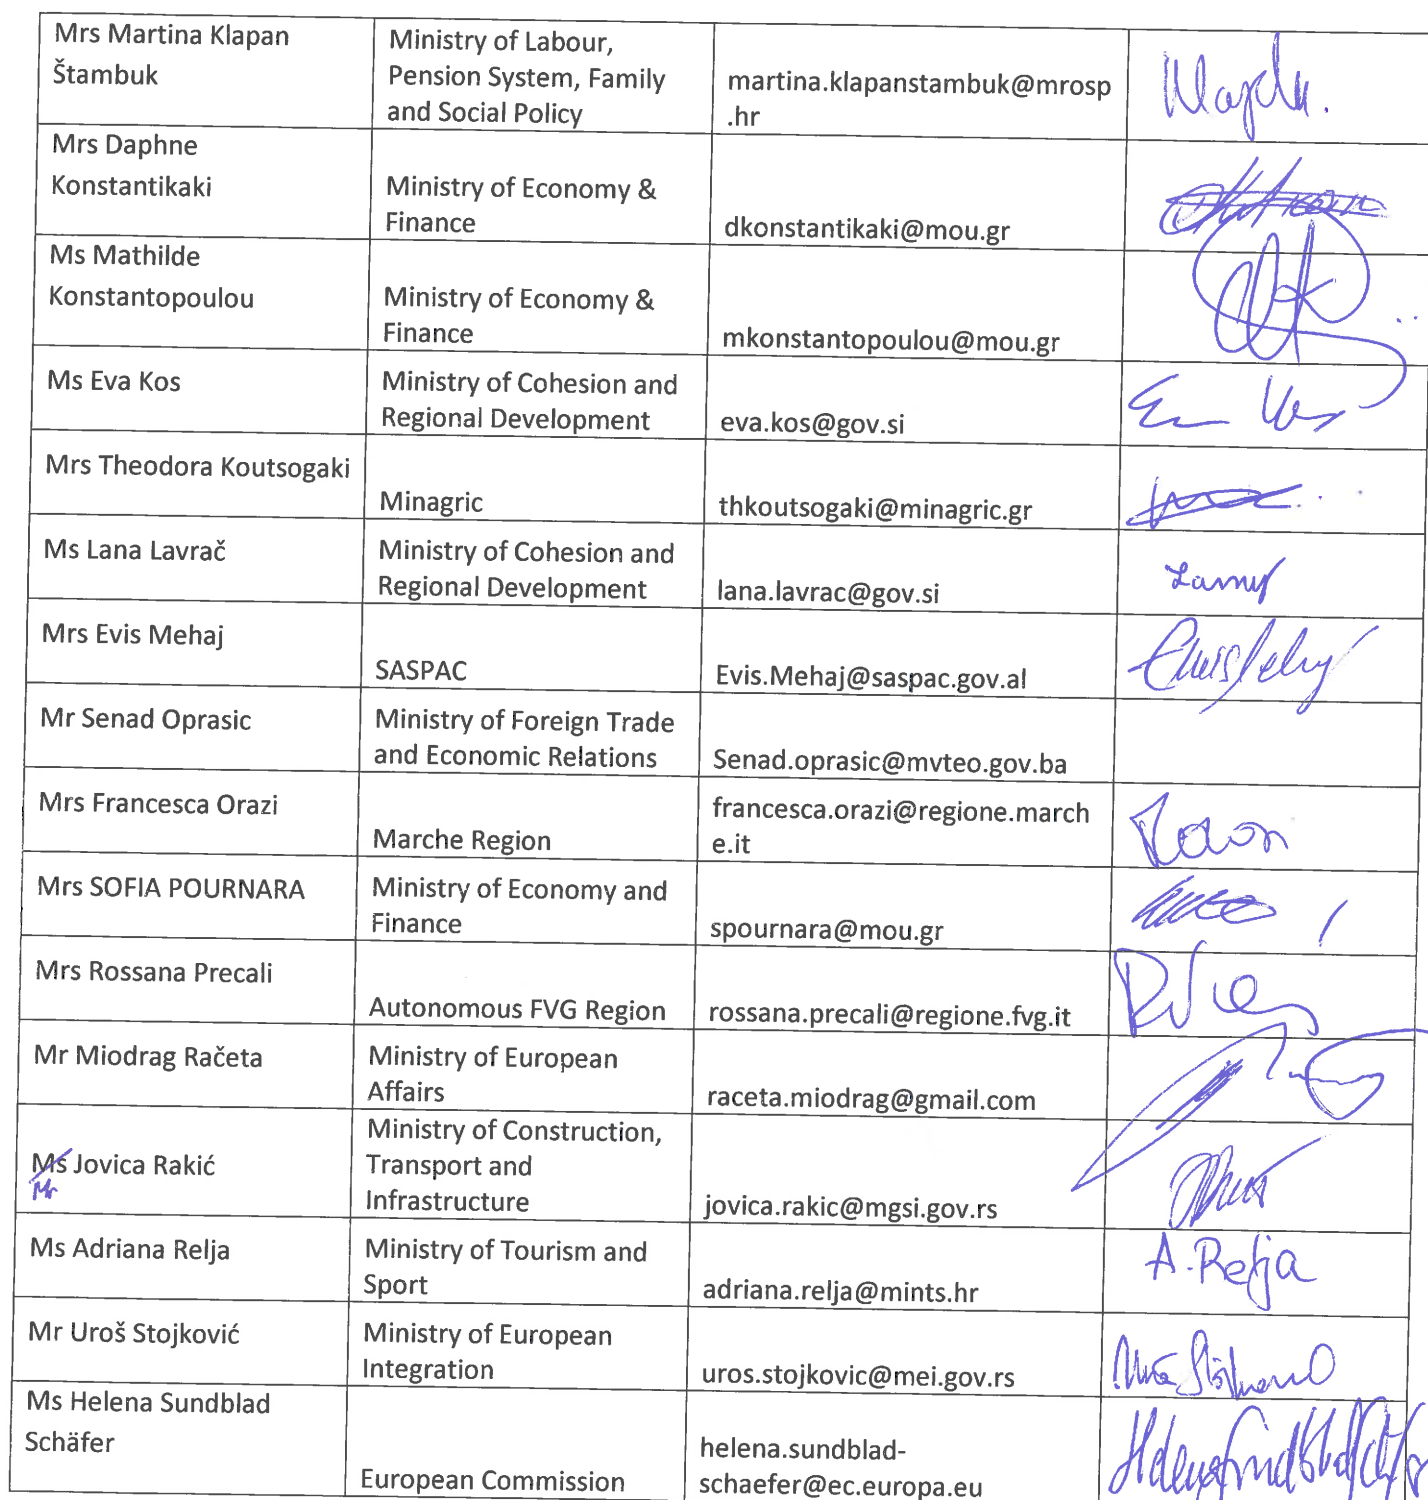 Mrs Martina Klapan
Štambuk
Ministry of Labour,
Pension System, Family
and Social Policy
martina.klapanstambuk@mrosp
.hr
Mrs Daphne
Konstantikaki
Ministry of Economy &
Finance
dkonstantikaki@mou.gr
Ms Mathilde
Konstantopoulou
Ministry of Economy &
Finance
mkonstantopoulou@mou.gr
Ms Eva Kos
Ministry of Cohesion and
Regional Development
eva.kos@gov.si
Mrs Theodora Koutsogaki
Minagric
thkoutsogaki@minagric.gr
Ms Lana Lavrač
Ministry of Cohesion and
Regional Development
lana.lavrac@gov.si
Mrs Evis Mehaj
SASPAC
Evis.Mehaj@saspac.gov.al
Mr Senad Oprasic
Ministry of Foreign Trade
and Economic Relations
Senad.oprasic@mvteo.gov.ba
Mrs Francesca Orazi
Marche Region
francesca.orazi@regione.march
e.it
Mrs SOFIA POURNARA
Ministry of Economy and
Finance
spournara@mou.gr
Mrs Rossana Precali
Autonomous FVG Region
rossana.precali@regione.fvg.it
Mr Miodrag Račeta
Ministry of European
Affairs
raceta.miodrag@gmail.com
Ms Jovica Rakić
Mr
Ministry of Construction,
Transport and
Infrastructure
jovica.rakic@mgsi.gov.rs
Ms Adriana Relja
Ministry of Tourism and
Sport
adriana.relja@mints.hr
A. Relja
Mr Uroš Stojković
Ministry of European
Integration
uros.stojkovic@mei.gov.rs
Ms Helena Sundblad
Schäfer
European Commission
helena.sundblad-
schaefer@ec.europa.eu